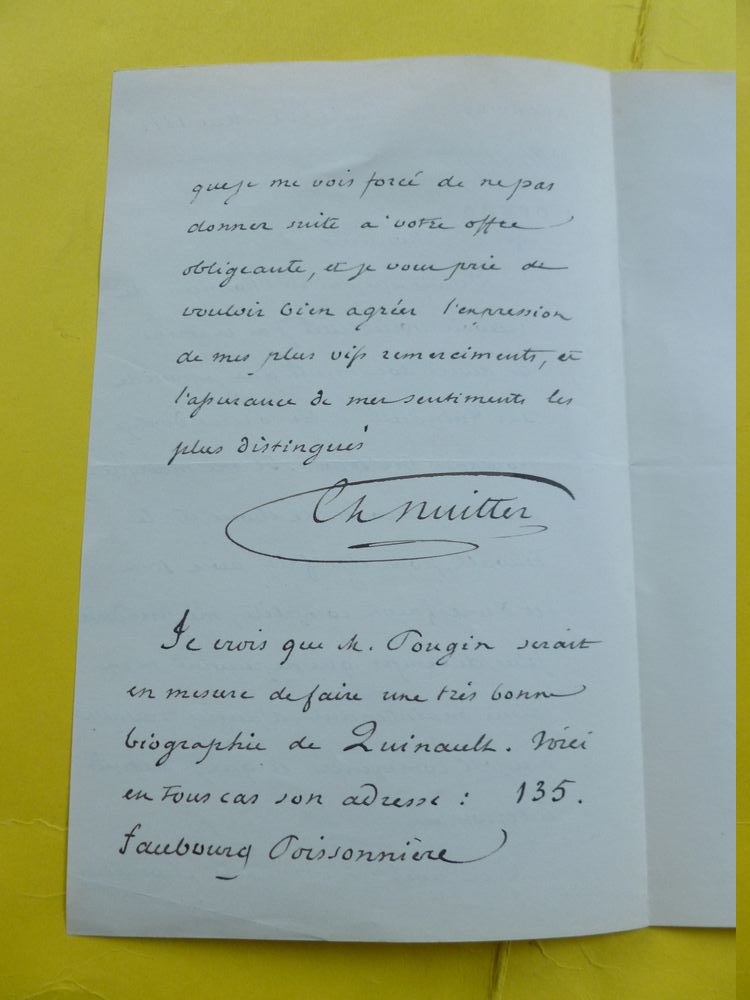 que je me vois forcé de ne pas
donner suite a votre offre
obligeante, et je vous prie de
vouloir bien agréer l'expression
de mes plus vifs remerciments, et
l'assurance de mes sentiments les
plus distingués
Ch Nuitter
Je crois que M. Pougin serait
en mesure de faire une très bonne
biographie de Quinault. Voici
en tous cas son adresse : 135.
faubourg Poissonnière